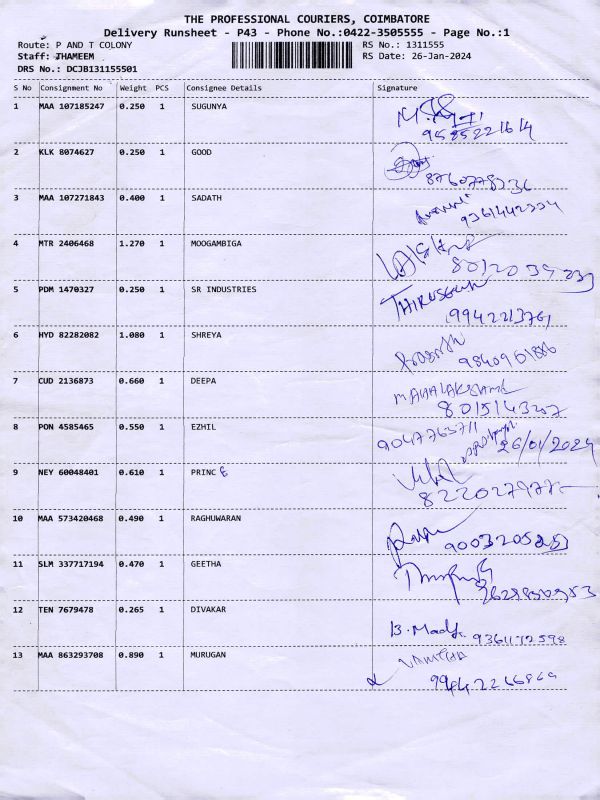 THE PROFESSIONAL COURIERS, COIMBATORE
Delivery Runsheet - P43 - Phone No.:0422-3505555 - Page No.:1
Route: P AND T COLONY RS No.: 1311555
Staff: JHAMEEM RS Date: 26-Jan-2024
DRS No.: DCJB131155501
S No Consignment No Weight PCS Consignee Details Signature
1 MAA 107185247 0.250 1 SUGUNYA
9585221614
2 KLK 8074627 0.250 1 GOOD
3 MAA 107271843 0.400 1 SADATH
9361442334
4 MTR 2406468 1.270 1 MOOGAMBIGA
5 PDM 1470327 0.250 1 SR INDUSTRIES
9942213761
6 HYD 82282082 1.080 1 SHREYA
7 CUD 2136873 0.660 1 DEEPA
MAHALAKSHMI
8015143207
8 PON 4585465 0.550 1 EZHIL
9047763711
26/01/2024
9 NEY 60048401 0.610 1 PRINCE
10 MAA 573420468 0.490 1 RAGHUWARAN
9003205253
11 SLM 337717194 0.470 1 GEETHA
12 TEN 7679478 0.265 1 DIVAKAR
13 MAA 863293708 0.890 1 MURUGAN